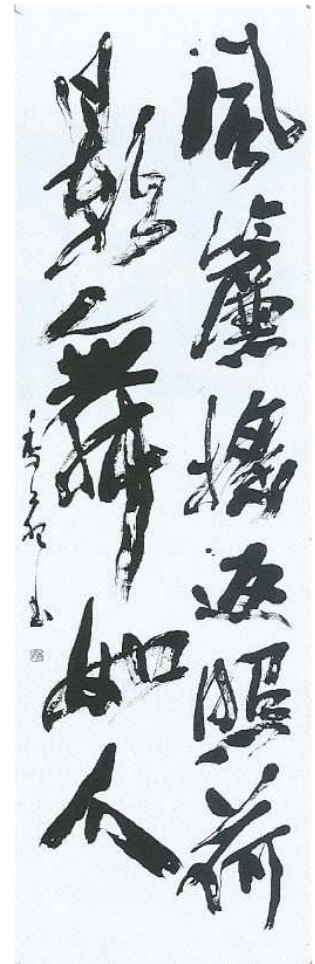 風簾搖返照荷
影舞如人